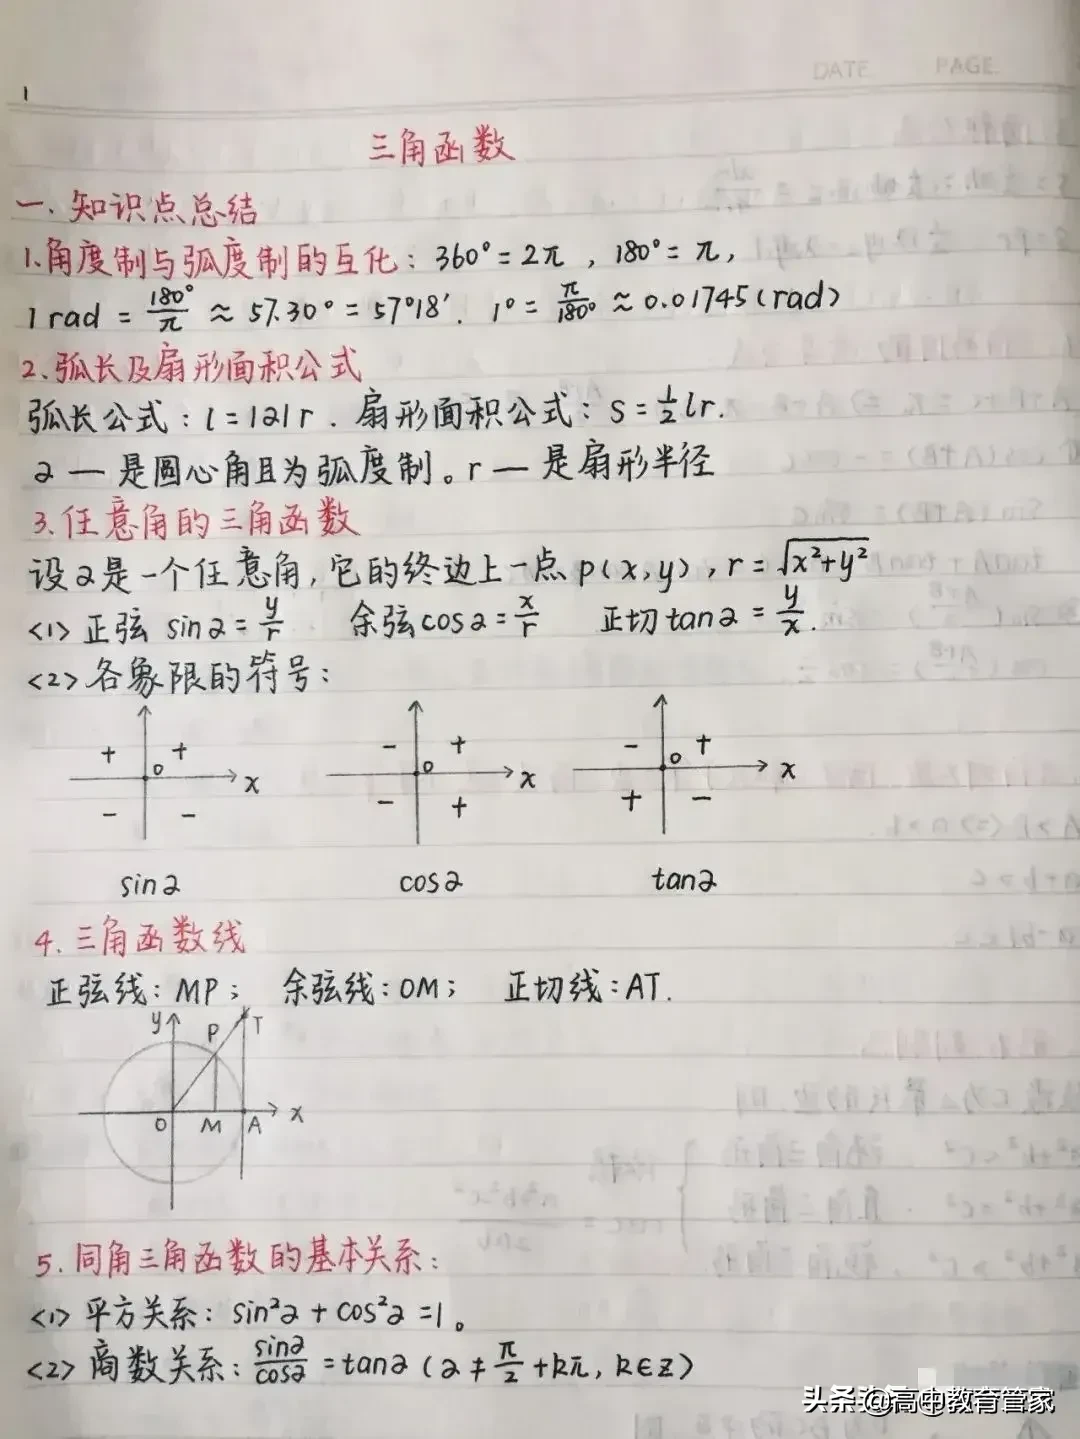 DATE PAGE
1
三角函数
一、知识点总结
1.角度制与弧度制的互化：360°=2π，180°=π，
1 rad = 180°/π ≈ 57.30° = 57°18′. 1° = π/180° ≈ 0.01745(rad)
2、弧长及扇形面积公式
弧长公式：l=|α|r. 扇形面积公式：S=½lr.
α — 是圆心角且为弧度制。r — 是扇形半径
3、任意角的三角函数
设α是一个任意角，它的终边上一点p(x,y)，r=√x²+y²
<1>正弦 sinα=y/r 余弦cosα=x/r 正切tanα=y/x.
<2>各象限的符号：
+ + - + - +
o x o x o x
- - - + + -
sinα cosα tanα
4.三角函数线
正弦线：MP； 余弦线：OM； 正切线：AT.
y P T
O M A x
5.同角三角函数的基本关系：
<1>平方关系：sin²α+cos²α=1。
<2>商数关系：sinα/cosα=tanα(α≠π/2+kπ，k∈z)
头条 @高中教育管家